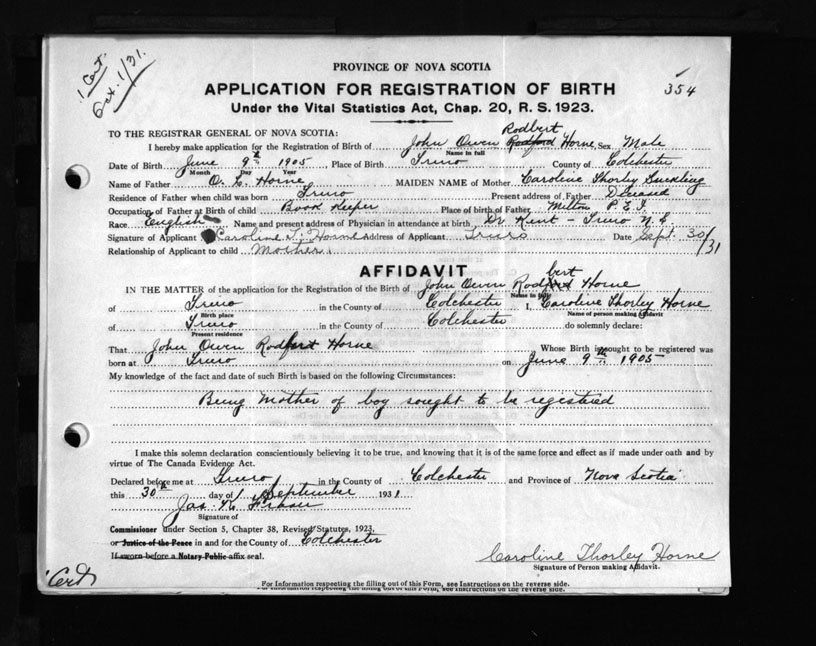 1 Cert.
Oct. 1/31.
PROVINCE OF NOVA SCOTIA
APPLICATION FOR REGISTRATION OF BIRTH
354
Under the Vital Statistics Act, Chap. 20, R. S. 1923.
TO THE REGISTRAR GENERAL OF NOVA SCOTIA:
Rodbert
I hereby make application for the Registration of Birth of John Owen Rodford Horne, Sex Male
Name in full
Date of Birth June 9th 1905 Place of Birth Truro County of Colchester
Month Day Year
Name of Father O. L. Horne MAIDEN NAME of Mother Caroline Thorley Suckling
Residence of Father when child was born Truro Present address of Father
Occupation of Father at Birth of child Book Keeper Place of birth of Father Milton P.E.I.
Race English Name and present address of Physician in attendance at birth Dr Kent - Truro N.S.
Signature of Applicant Caroline T. Horne Address of Applicant Truro Date Sept. 30/31
Relationship of Applicant to child Mother.
AFFIDAVIT
bert
IN THE MATTER of the application for the Registration of Birth of John Owen Rodford Horne
Name in full
of Truro in the County of Colchester I, Caroline Thorley Horne
Birth place Name of person making affidavit
of Truro in the County of Colchester do solemnly declare:
Present residence
That John Owen Rodbert Horne Whose Birth is sought to be registered was
born at Truro on June 9th 1905
My knowledge of the fact and date of such Birth is based on the following Circumstances:
Being Mother of boy sought to be registered
I make this solemn declaration conscientiously believing it to be true, and knowing that it is of the same force and effect as if made under oath and by
virtue of The Canada Evidence Act.
Declared before me at Truro in the County of Colchester and Province of Nova Scotia
this 30th day of September 1931
Jas. Fraser
Signature of
Commissioner under Section 5, Chapter 38, Revised Statutes, 1923,
or Justice of the Peace in and for the County of Colchester
If sworn before a Notary Public affix seal.
Caroline Thorley Horne
Signature of Person making Affidavit.
Cert
For Information respecting the filling out of this Form, see Instructions on the reverse side.
For Information respecting the filling out of this Form, see Instructions on the reverse side.